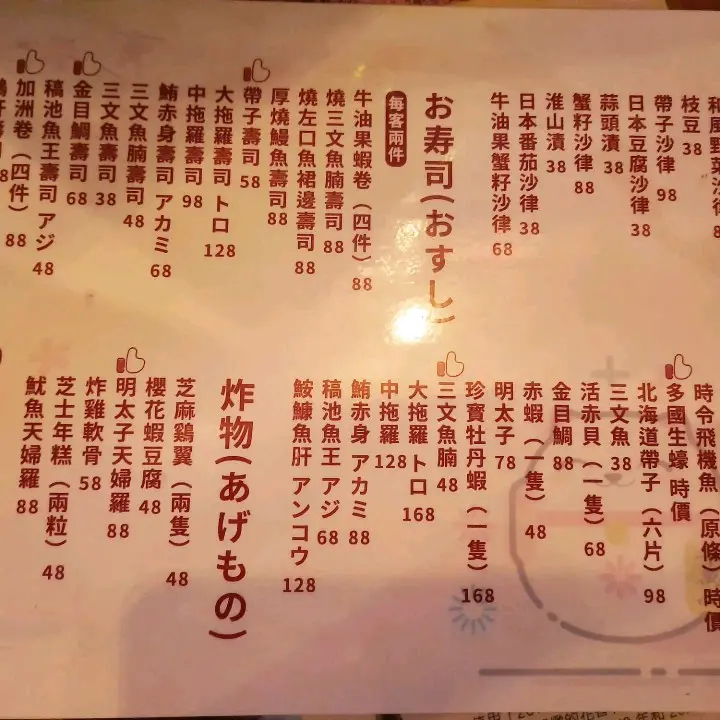 枝豆 38
帶子沙律 98
日本豆腐沙律 38
蒜頭漬 38
蟹籽沙律 88
淮山漬 38
日本番茄沙律 38
牛油果蟹籽沙律 68
お寿司(おすし)
每客兩件
牛油果蝦卷（四件） 88
燒三文魚腩壽司 88
燒左口魚裙邊壽司 88
厚燒鰻魚壽司 88
帶子壽司 58
大拖羅壽司 トロ 128
中拖羅壽司 98
鮪赤身壽司 アカミ 68
三文魚腩壽司 48
三文魚壽司 38
金目鯛壽司 68
稿池魚王壽司 アジ 48
加洲卷（四件） 88
時令飛機魚（原條）時價
多國生蠔 時價
北海道帶子（六片） 98
三文魚 38
活赤貝（一隻） 68
金目鯛 88
赤蝦（一隻） 48
明太子 78
珍寶牡丹蝦（一隻） 168
三文魚腩 48
大拖羅 トロ 168
中拖羅 128
鮪赤身 アカミ 88
稿池魚王 アジ 68
鮟鱇魚肝 アンコウ 128
炸物(あげもの)
芝麻鷄翼（兩隻） 48
櫻花蝦豆腐 48
明太子天婦羅 88
炸雞軟骨 58
芝士年糕（兩粒） 48
魷魚天婦羅 88